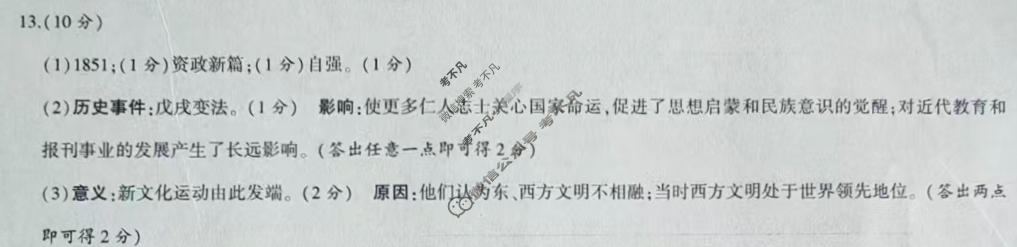 13.(10分)
(1)1851;(1分)资政新篇;(1分)自强。(1分)
(2)历史事件:戊戌变法。(1分) 影响:使更多仁人志士关心国家命运,促进了思想启蒙和民族意识的觉醒;对近代教育和
报刊事业的发展产生了长远影响。(答出任意一点即可得2分)
(3)意义:新文化运动由此发端。(2分) 原因:他们认为东、西方文明不相融;当时西方文明处于世界领先地位。(答出两点
即可得2分)
考不凡
微信搜索 考不凡
考不凡
微信公众号 考不凡